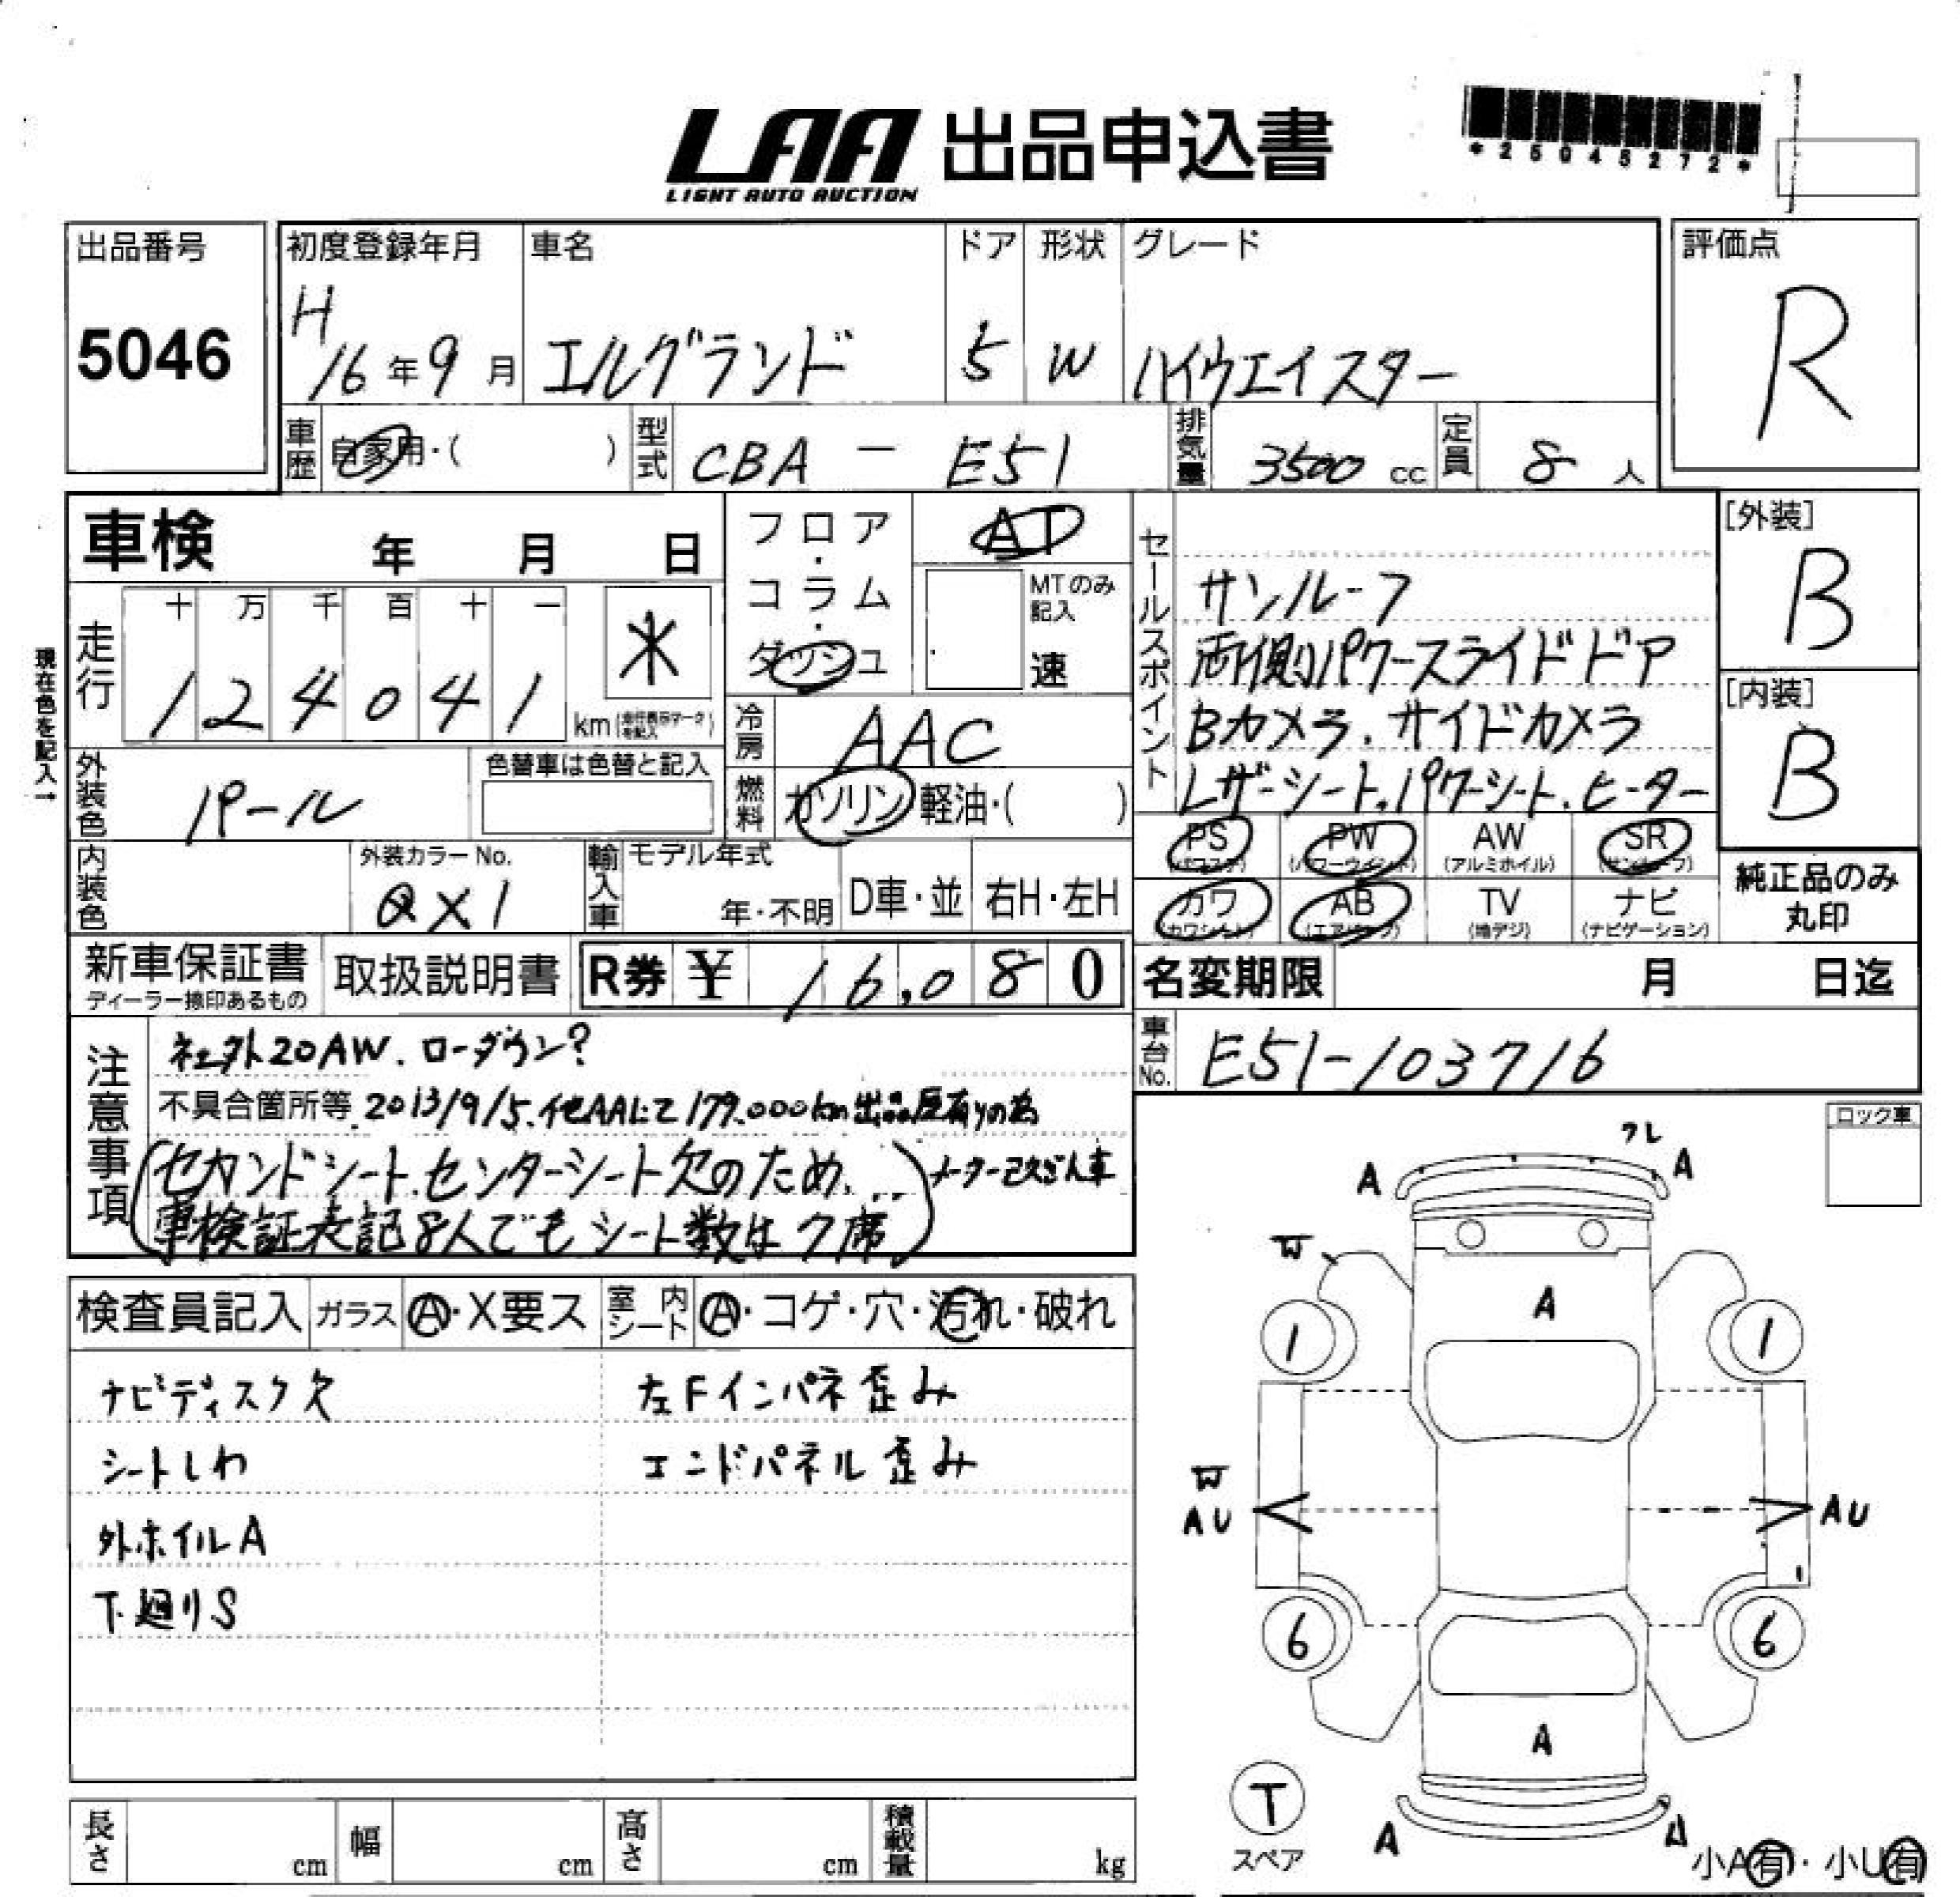 LAA 出品申込書
LIGHT AUTO AUCTION
*25045272*
出品番号
5046
初度登録年月
H 16年9月
車名
エルグランド
ドア
5
形状
W
グレード
ハイウエイスター
評価点
R
車歴 自家用・( )
型式 CBA - E51
排気量 3500 cc
定員 8 人
車検 年 月 日
フロア・コラム・ダッシュ
AT
MTのみ記入
速
セールスポイント
サンルーフ
両側パワースライドドア
Bカメラ、サイドカメラ
レザーシート、パワーシート、ヒーター
[外装]
B
[内装]
B
現在色を記入→
走行
十 万 千 百 十 一
1 2 4 0 4 1
*
km
冷房 AAC
燃料 ガソリン 軽油・( )
外装色 パール
色替車は色替と記入
内装色
外装カラーNo.
QX1
輸入車 モデル年式
年・不明
D車・並
右H・左H
PS (パワステ)
PW (パワーウインド)
AW (アルミホイル)
SR (サンルーフ)
カワ (カワシート)
AB (エアバック)
TV (地デジ)
ナビ (ナビゲーション)
純正品のみ
丸印
新車保証書
ディーラー捺印あるもの
取扱説明書
R券 ¥ 16,080
名変期限 月 日迄
車台No. E51-103716
注意事項
社外20AW、ローダウン?
不具合箇所等 2013/9/5、他AAにて179.000km出品歴有りの為
メーター改ざん車
(セカンドシート、センターシート欠のため、
車検証表記8人でもシート数は7席)
ロック車
検査員記入
ガラス A・X要ス
室内シート A・コゲ・穴・汚れ・破れ
ナビディスク欠
シートしわ
外ホイルA
下廻りS
左Fインパネ歪み
エンドパネル歪み
ワレ
A
A
W
A
1
1
W
AU
AU
6
6
A
T
スペア
A
小A有・小U有
長さ cm
幅 cm
高さ cm
積載量 kg